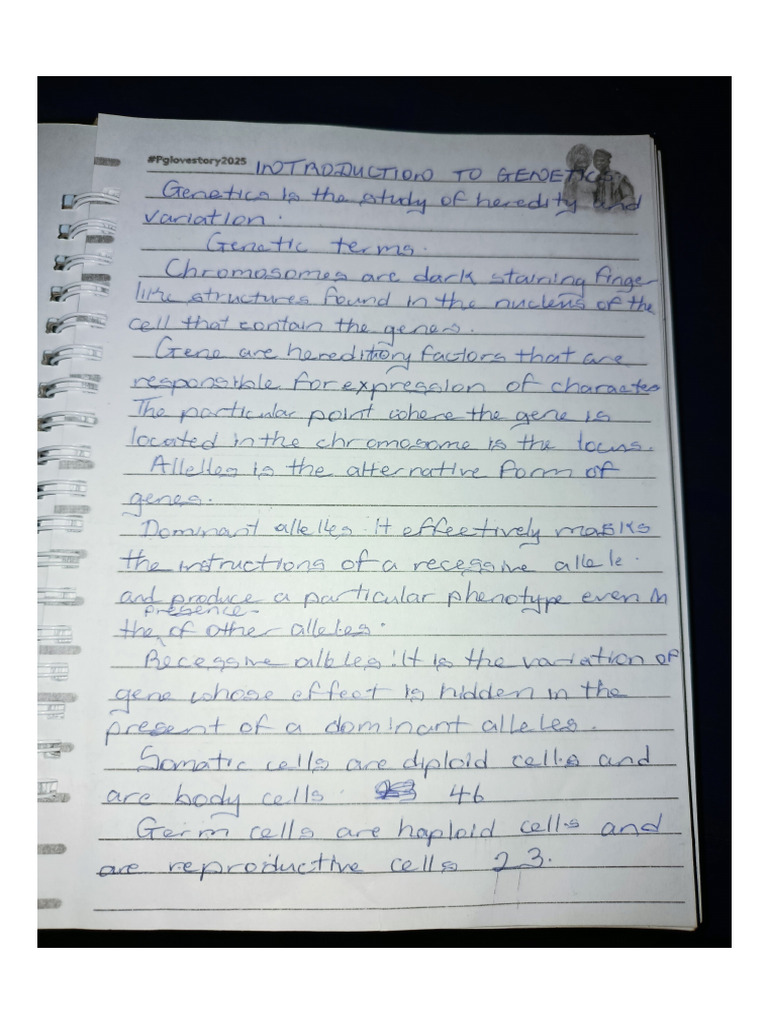 #Pglovestory2025 INTRODUCTION TO GENETICS
Genetics is the study of heredity and
variation.
Genetic terms.
Chromosomes are dark staining finger
like structures found in the nucleus of the
cell that contain the genes.
Gene are hereditory factors that are
responsible for expression of character
The particular point where the gene is
located in the chromosome is the locus.
Allelles is the alternative form of
genes.
Dominant allelles: It effectively masks
the instructions of a recessive allele.
and produce a particular phenotype even in
presence
the of other alleles.
Recessive alleles: It is the variation of
gene whose effect is hidden in the
present of a dominant alleles.
Somatic cells are diploid cells and
are body cells. 46
Germ cells are haploid cells and
are reproductive cells 23.